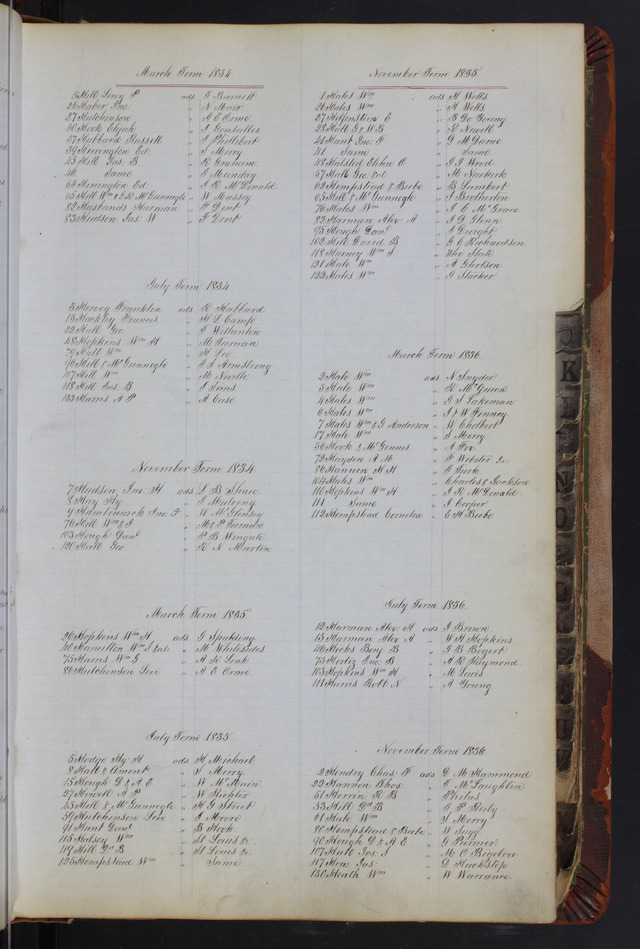 March Term 1834.
5 Hill Lowy P ads J Barnett
26 Huber Jno. " N Mair
27 Hutchinson " A E Orme
30 Hook Elijah " J Gonsalles
37 Hubbard Russell " J Philibert
39 Herrington Ed. " S Merry
45 Hill Jas. B " R Graham
46 Same " J Munday
53 Herrington Ed. " J R McDonald
65 Hill Wm & E K McGunnegle " W Massey
82 Husbands Harman " F Dent
83 Hudson Jas. W " F Dent
July Term 1834
3 Hervey Franklin ads R Hubbard
13 Huckley Francis " H L Camp
22 Hall Geo " J Witherton
48 Hopkins Wm H " M Tiernan
79 Hall Wm " H Lee
90 Hill & McGunnegle " G S Armstrong
107 Hill Wm " M Neville
118 Hill Jas. B " J Sims
133 Harris A P " A Case
November Term 1834.
7 Hudson Jno H ads L B Shaw
8 Hay Hy. " J Mulrony
9 Hamtramck Jno. F " W McGlensey
76 Hill Wm & J " M & P Turndee
103 Hough Danl " P B Wingate
120 Hall Geo " R N Martin
March Term 1835
26 Hopkins Wm H ads G Spalding
40 Hamilton Wm S &al " M Whitesides
75 Harris Wm G " H K Leak
86 Hutchenson Levi " A E Orme
July Term 1835.
5 Hodge Hy. H ads H Michael
8 Hall & Ament " S Merry
15 Hough D & A E " W McBrien
27 Howell A P " W Richter
43 Hill & McGunnegle " H G Street
59 Hutchenson Levi " J Moore
91 Hunt Danl " B Stock
115 Halsey Wm " St Louis &c.
119 Hill Dd B " St Louis &c
125 Hempstead Wm " Same
November Term 1835
1 Hales Wm ads H Wells
26 Hales Wm " H Wells
27 Hilfenstein E " B De Young
28 Hill G & WB " R Newell
40 Hunt Jno. F " D McGame
41 Same " Same
48 Halsted Elihu O " G J Wood
57 Hall Geo. &al " M Newkirk
62 Hempstead & Beebe " B Lambert
65 Hill & McGunnegle " J Brotherton
76 Hales Wm " J C McGraw
82 Harman Alex. A " J D Glenn
95 Hough Danl " J Dwight
102 Hill David B " G C Richardson
118 Harney Wm S " The State
121 Hale Wm " A Gholson
122 Hales Wm " J Stacker
March Term 1836.
2 Hale Wm ads N Snyder
3 Hale Wm " R McQueen
4 Hales Wm " G S Lakeman
6 Hales Wm " J & W Penney
7 Hales Wm & G Anderson " W Chilbert
17 Hale Wm " S Merry
36 Hook & McGennes " A Fox
72 Hayden A M " F Webster &c
86 Hannon H H " J Turk
104 Hales Wm " Charles & Jackson
110 Hopkins Wm H " J R McDonald
111 Same " J Cooper
112 Hempstead Cornelia " E H Beebe
July Term 1836.
12 Harman Alex. H ads J Brown
15 Harman Alex A " W H Hopkins
40 Hicks Benj B " G B Bogert
75 Hertiz Jno. B " A R Raymond
103 Hopkins Wm H " M Lewis
111 Harris Robt N " A Young
November Term 1836.
2 Hendry Chas. F ads G M Hammond
22 Hannon Thos. " E McLaughlin
51 Herrin R B " Philut
53 Hill Dd B " J P Reily
61 Hale Wm " S Merry
80 Hempstead & Beebe " W Sugg
90 Hough D & A E " G Parmer
107 Hull Jos. S " M C Bigelow
117 How Jas. " D Huckstep
130 Heath Wm " W Warrance
J
K
N
O